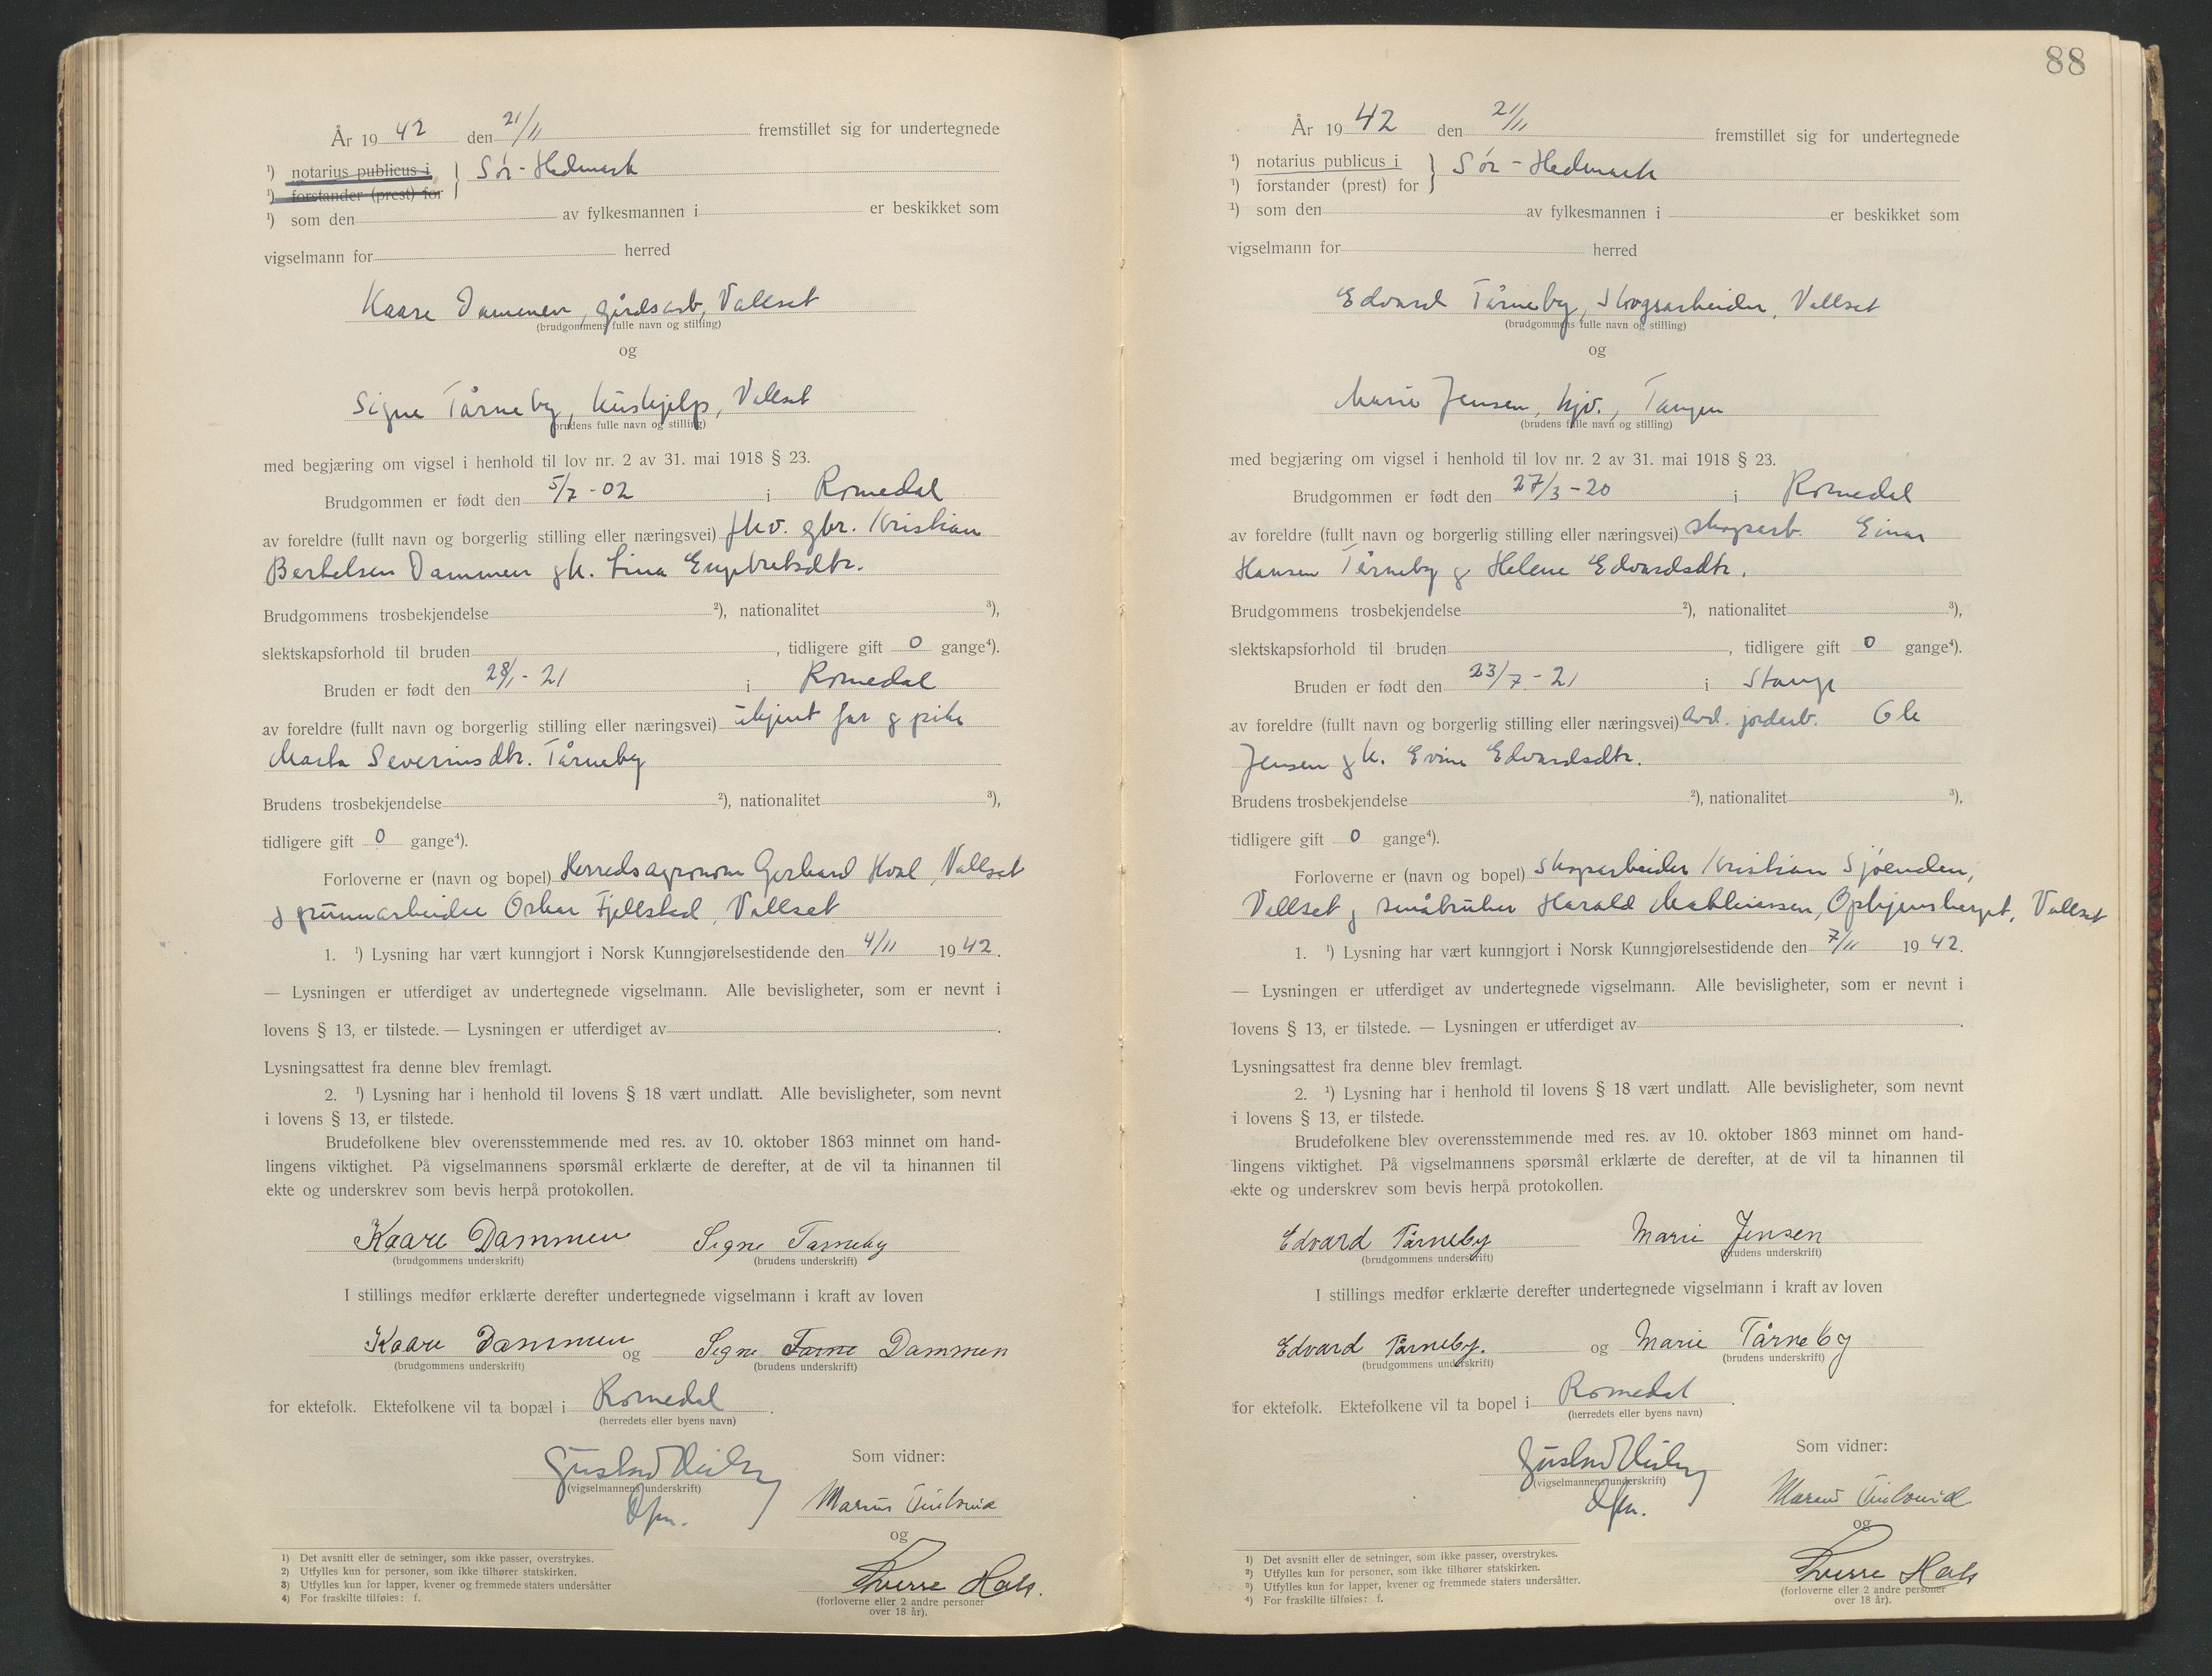 År 19 42 den 21/11 fremstillet sig for undertegnede
¹) notarius publicus i } Sør-Hedmark
¹) forstander (prest) for
¹) som den av fylkesmannen i er beskikket som
vigselmann for herred
Kaare Dammen, gårdsarb, Vallset
(brudgommens fulle navn og stilling)
og
Signe Tårneby, hushjelp, Vallset
(brudens fulle navn og stilling)
med begjæring om vigsel i henhold til lov nr. 2 av 31. mai 1918 § 23.
Brudgommen er født den 5/7 - 02 i Romedal
av foreldre (fullt navn og borgerlig stilling eller næringsvei) fhv. gbr. Kristian
Bertelsen Dammen og h. Lina Engebretsdtr.
Brudgommens trosbekjendelse ²), nationalitet ³),
slektskapsforhold til bruden , tidligere gift 0 gange⁴).
Bruden er født den 28/1 - 21 i Romedal
av foreldre (fullt navn og borgerlig stilling eller næringsvei) ukjent far og pike
Marta Severinsdtr. Tårneby
Brudens trosbekjendelse ²), nationalitet ³),
tidligere gift 0 gange⁴).
Forloverne er (navn og bopel) Herredsagronom Gerhard Hval, Vallset
og grunnarbeider Oskar Fjellstad, Vallset
1. ¹) Lysning har vært kunngjort i Norsk Kunngjørelsestidende den 4/11 19 42.
— Lysningen er utferdiget av undertegnede vigselmann. Alle bevisligheter, som er nevnt i
lovens § 13, er tilstede. — Lysningen er utferdiget av .
Lysningsattest fra denne blev fremlagt.
2. ¹) Lysning har i henhold til lovens § 18 vært undlatt. Alle bevisligheter, som nevnt
i lovens § 13, er tilstede.
Brudefolkene blev overensstemmende med res. av 10. oktober 1863 minnet om hand-
lingens viktighet. På vigselmannens spørsmål erklærte de derefter, at de vil ta hinannen til
ekte og underskrev som bevis herpå protokollen.
Kaare Dammen Signe Tarneby
(brudgommens underskrift) (brudens underskrift)
I stillings medfør erklærte derefter undertegnede vigselmann i kraft av loven
Kaare Dammen og Signe Tarne Dammen
(brudgommens underskrift) (brudens underskrift)
for ektefolk. Ektefolkene vil ta bopæl i Romedal .
(herredets eller byens navn)
Gustav Heiby
(vigselmannens underskrift)
Som vidner:
Marius
og
Sverre Hals.
(forloverne eller 2 andre personer
over 18 år).
1) Det avsnitt eller de setninger, som ikke passer, overstrykes.
2) Utfylles kun for personer, som ikke tilhører statskirken.
3) Utfylles kun for lapper, kvener og fremmede staters undersåtter
4) For fraskilte tilføies: f.
88
År 19 42 den 21/11 fremstillet sig for undertegnede
¹) notarius publicus i } Sør-Hedmark
¹) forstander (prest) for
¹) som den av fylkesmannen i er beskikket som
vigselmann for herred
Edvard Tårneby, skogsarbeider, Vallset
(brudgommens fulle navn og stilling)
og
Marie Jensen, hjv., Tangen
(brudens fulle navn og stilling)
med begjæring om vigsel i henhold til lov nr. 2 av 31. mai 1918 § 23.
Brudgommen er født den 27/3 - 20 i Romedal
av foreldre (fullt navn og borgerlig stilling eller næringsvei) skogsarb. Einar
Hansen Tårneby og Helene Edvardsdtr.
Brudgommens trosbekjendelse ²), nationalitet ³),
slektskapsforhold til bruden , tidligere gift 0 gange⁴).
Bruden er født den 23/7 - 21 i Stange
av foreldre (fullt navn og borgerlig stilling eller næringsvei) avd. jordarb. Ole
Jensen og h. Evine Edvardsdtr.
Brudens trosbekjendelse ²), nationalitet ³),
tidligere gift 0 gange⁴).
Forloverne er (navn og bopel) skogsarbeider Kristian Sjøenden,
Vallset og småbruker Harald Mathiassen, Opkjensberget, Vallset
1. ¹) Lysning har vært kunngjort i Norsk Kunngjørelsestidende den 7/11 19 42.
— Lysningen er utferdiget av undertegnede vigselmann. Alle bevisligheter, som er nevnt i
lovens § 13, er tilstede. — Lysningen er utferdiget av .
Lysningsattest fra denne blev fremlagt.
2. ¹) Lysning har i henhold til lovens § 18 vært undlatt. Alle bevisligheter, som nevnt
i lovens § 13, er tilstede.
Brudefolkene blev overensstemmende med res. av 10. oktober 1863 minnet om hand-
lingens viktighet. På vigselmannens spørsmål erklærte de derefter, at de vil ta hinannen til
ekte og underskrev som bevis herpå protokollen.
Edvard Tårneby Marie Jensen
(brudgommens underskrift) (brudens underskrift)
I stillings medfør erklærte derefter undertegnede vigselmann i kraft av loven
Edvard Tårneby. og Marie Tårneby
(brudgommens underskrift) (brudens underskrift)
for ektefolk. Ektefolkene vil ta bopel i Romedal .
(herredets eller byens navn)
Gustav Heiby
(vigselmannens underskrift)
Som vidner:
Marius
og
Sverre Hals
(forloverne eller 2 andre personer
over 18 år).
1) Det avsnitt eller de setninger, som ikke passer, overstrykes.
2) Utfylles kun for personer, som ikke tilhører statskirken.
3) Utfylles kun for lapper, kvener og fremmede staters undersåtter.
4) For fraskilte tilføies: f.